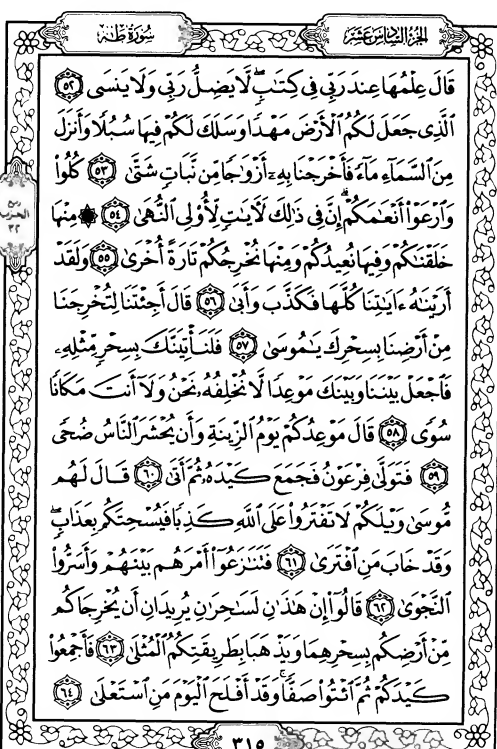 الجزء السادس عشر
سورة طه
قَالَ عِلْمُهَا عِندَ رَبِّي فِي كِتَٰبٖۖ لَّا يَضِلُّ رَبِّي وَلَا يَنسَى ٥٢
ٱلَّذِي جَعَلَ لَكُمُ ٱلْأَرْضَ مَهْدٗا وَسَلَكَ لَكُمْ فِيهَا سُبُلٗا وَأَنزَلَ
مِنَ ٱلسَّمَآءِ مَآءٗ فَأَخْرَجْنَا بِهِۦٓ أَزْوَٰجٗا مِّن نَّبَاتٖ شَتَّىٰ ٥٣ كُلُوا۟
وَٱرْعَوْا۟ أَنْعَٰمَكُمْۚ إِنَّ فِي ذَٰلِكَ لَأٓيَٰتٖ لِّأُو۟لِي ٱلنُّهَىٰ ٥٤ ۞ مِنْهَا
ربع الحزب ٣٢
خَلَقْنَٰكُمْ وَفِيهَا نُعِيدُكُمْ وَمِنْهَا نُخْرِجُكُمْ تَارَةً أُخْرَىٰ ٥٥ وَلَقَدْ
أَرَيْنَٰهُ ءَايَٰتِنَا كُلَّهَا فَكَذَّبَ وَأَبَىٰ ٥٦ قَالَ أَجِئْتَنَا لِتُخْرِجَنَا
مِنْ أَرْضِنَا بِسِحْرِكَ يَٰمُوسَىٰ ٥٧ فَلَنَأْتِيَنَّكَ بِسِحْرٖ مِّثْلِهِۦ
فَٱجْعَلْ بَيْنَنَا وَبَيْنَكَ مَوْعِدٗا لَّا نُخْلِفُهُۥ نَحْنُ وَلَآ أَنتَ مَكَانٗا
سُوٗى ٥٨ قَالَ مَوْعِدُكُمْ يَوْمُ ٱلزِّينَةِ وَأَن يُحْشَرَ ٱلنَّاسُ ضُحٗى
٥٩ فَتَوَلَّىٰ فِرْعَوْنُ فَجَمَعَ كَيْدَهُۥ ثُمَّ أَتَىٰ ٦٠ قَالَ لَهُم
مُّوسَىٰ وَيْلَكُمْ لَا تَفْتَرُوا۟ عَلَى ٱللَّهِ كَذِبٗا فَيُسْحِتَكُم بِعَذَابٖۖ
وَقَدْ خَابَ مَنِ ٱفْتَرَىٰ ٦١ فَتَنَٰزَعُوٓا۟ أَمْرَهُم بَيْنَهُمْ وَأَسَرُّوا۟
ٱلنَّجْوَىٰ ٦٢ قَالُوٓا۟ إِنْ هَٰذَٰنِ لَسَٰحِرَٰنِ يُرِيدَانِ أَن يُخْرِجَاكُم
مِّنْ أَرْضِكُم بِسِحْرِهِمَا وَيَذْهَبَا بِطَرِيقَتِكُمُ ٱلْمُثْلَىٰ ٦٣ فَأَجْمِعُوا۟
كَيْدَكُمْ ثُمَّ ٱئْتُوا۟ صَفّٗاۚ وَقَدْ أَفْلَحَ ٱلْيَوْمَ مَنِ ٱسْتَعْلَىٰ ٦٤
٣١٥